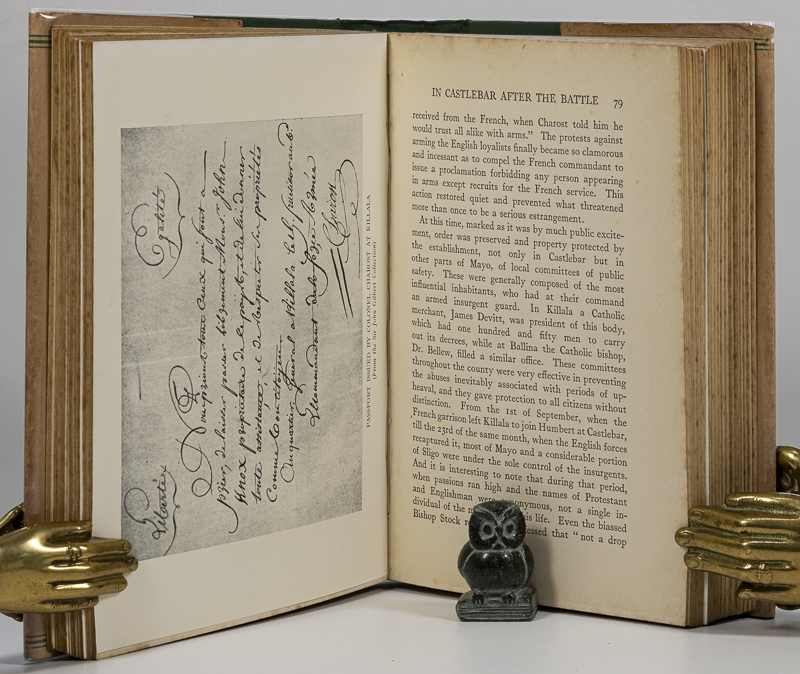 Liberté Egalité
Nous prions tous Ceux qui sont a
prier, de laisser passer librement Monsr John
Knox propriétaire de la et de lui donner
toute assistance et de Respecter Sa propriétés
Comme bon citoyen
Au quartier Général a Killala le
le Commandant
Charost
PASSPORT ISSUED BY COLONEL CHAROST AT KILLALA
(From the Sir John Gilbert Collection)
IN CASTLEBAR AFTER THE BATTLE 79
received from the French, when Charost told him he
would trust all alike with arms." The protests against
arming the English loyalists finally became so clamorous
and incessant as to compel the French commandant to
issue a proclamation forbidding any person appearing
in arms except recruits for the French service. This
action restored quiet and prevented what threatened
more than once to be a serious estrangement.
At this time, marked as it was by much public excite-
ment, order was preserved and property protected by
the establishment, not only in Castlebar but in
other parts of Mayo, of local committees of public
safety. These were generally composed of the most
influential inhabitants, who had at their command
an armed insurgent guard. In Killala a Catholic
merchant, James Devitt, was president of this body,
which had one hundred and fifty men to carry
out its decrees, while at Ballina the Catholic bishop,
Dr. Bellew, filled a similar office. These committees
throughout the county were very effective in preventing
the abuses inevitably associated with periods of up-
heaval, and they gave protection to all citizens without
distinction. From the 1st of September, when the
French garrison left Killala to join Humbert at Castlebar,
till the 23rd of the same month, when the English forces
recaptured it, most of Mayo and a considerable portion
of Sligo were under the sole control of the insurgents.
And it is interesting to note that during that period,
when passions ran high and the names of Protestant
and Englishman were synonymous, not a single in-
dividual of the his life. Even the biassed
Bishop Stock that "not a drop